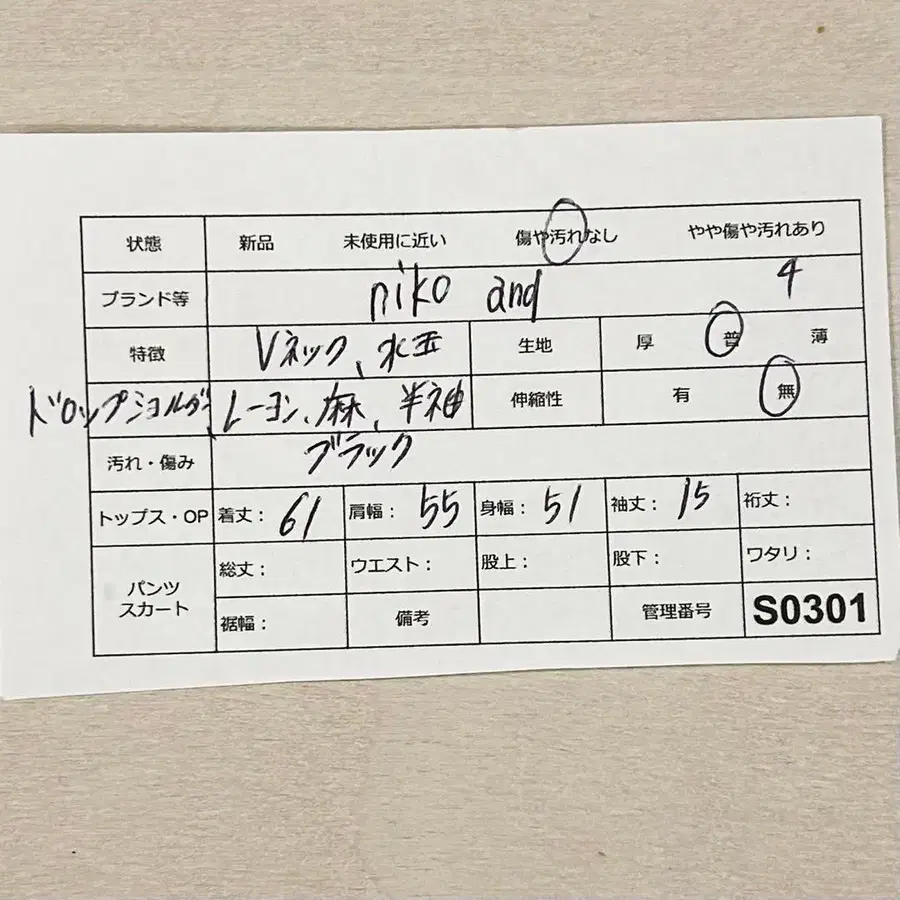 状態 新品 未使用に近い 傷や汚れなし やや傷や汚れあり
ブランド等 niko and 4
特徴 Vネック、水玉 生地 厚 普 薄
ドロップショルダー、レーヨン、麻、半袖 伸縮性 有 無
汚れ・傷み ブラック
トップス・OP 着丈： 61 肩幅： 55 身幅： 51 袖丈： 15 裄丈：
パンツ スカート 総丈： ウエスト： 股上： 股下： ワタリ：
裾幅： 備考 管理番号 S0301